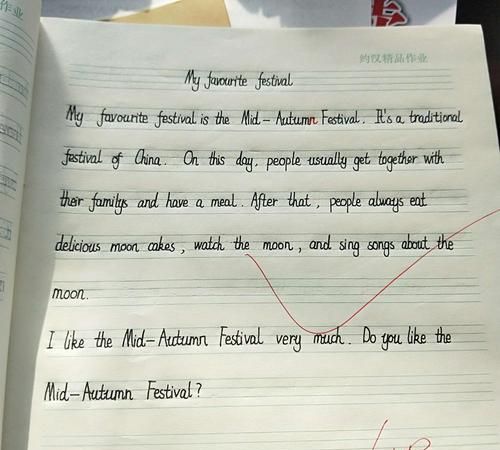 作业
约汉精品作业
My favourite festival
My favourite festival is the Mid-Autumn Festival. It's a traditional
festival of China. On this day, people usually get together with
their familys and have a meal. After that, people always eat
delicious moon cakes, watch the moon, and sing songs about the
moon.
I like the Mid-Autumn Festival very much. Do you like the
Mid-Autumn Festival?